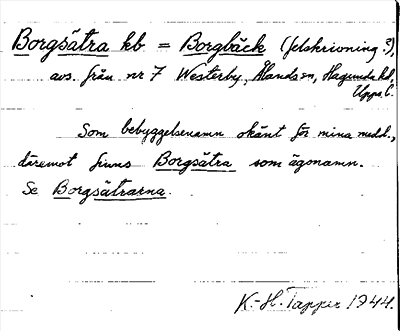 Borgsätra kb = Borgbäck (felskrivning?),
avs. från nr 7 Westerby, Ålands sn, Hagunda hd,
Upps. l.
Som bebyggelsenamn okänt för mina medd.,
däremot finns Borgsätra som ägonamn.
Se Borgsätrarna.
K.-H. Tapper 1944.